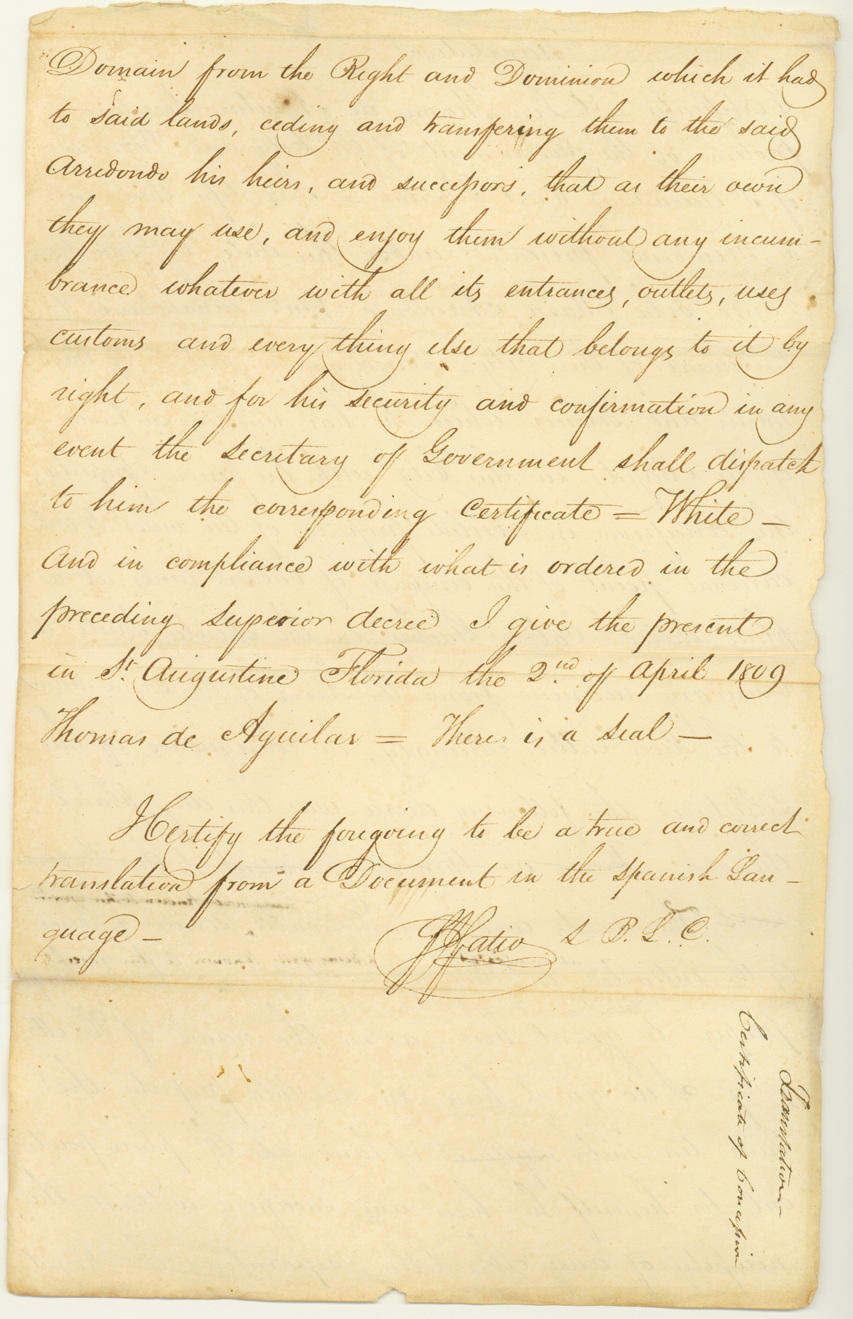 Domain from the Right and Dominion which it had
to said lands, ceding and transfering them to the said
Arredondo his heirs, and successors, that as their own
they may use, and enjoy them without any incum-
brance whatever with all its entrances, outlets, uses
customs and every thing else that belongs to it by
right, and for his security and confirmation in any
event the Secretary of Government shall dispatch
to him the corresponding Certificate = White –
And in compliance with what is ordered in the
preceding Superior decree I give the present
in St. Augustine Florida the 2nd of April 1809
Thomas de Aguilar = There is a Seal –
I Certify the foregoing to be a true and correct
translation from a Document in the Spanish Lan-
guage –
S. P. L. C.
Translation –
Certificate of Concession